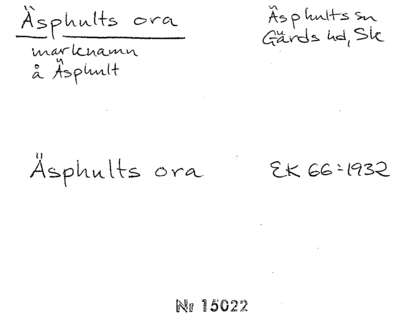 Äsphults ora
marknamn
å Äsphult
Äsphults sn
Gärds hd, Sk
Äsphults ora
EK 66:1932
Nr 15022